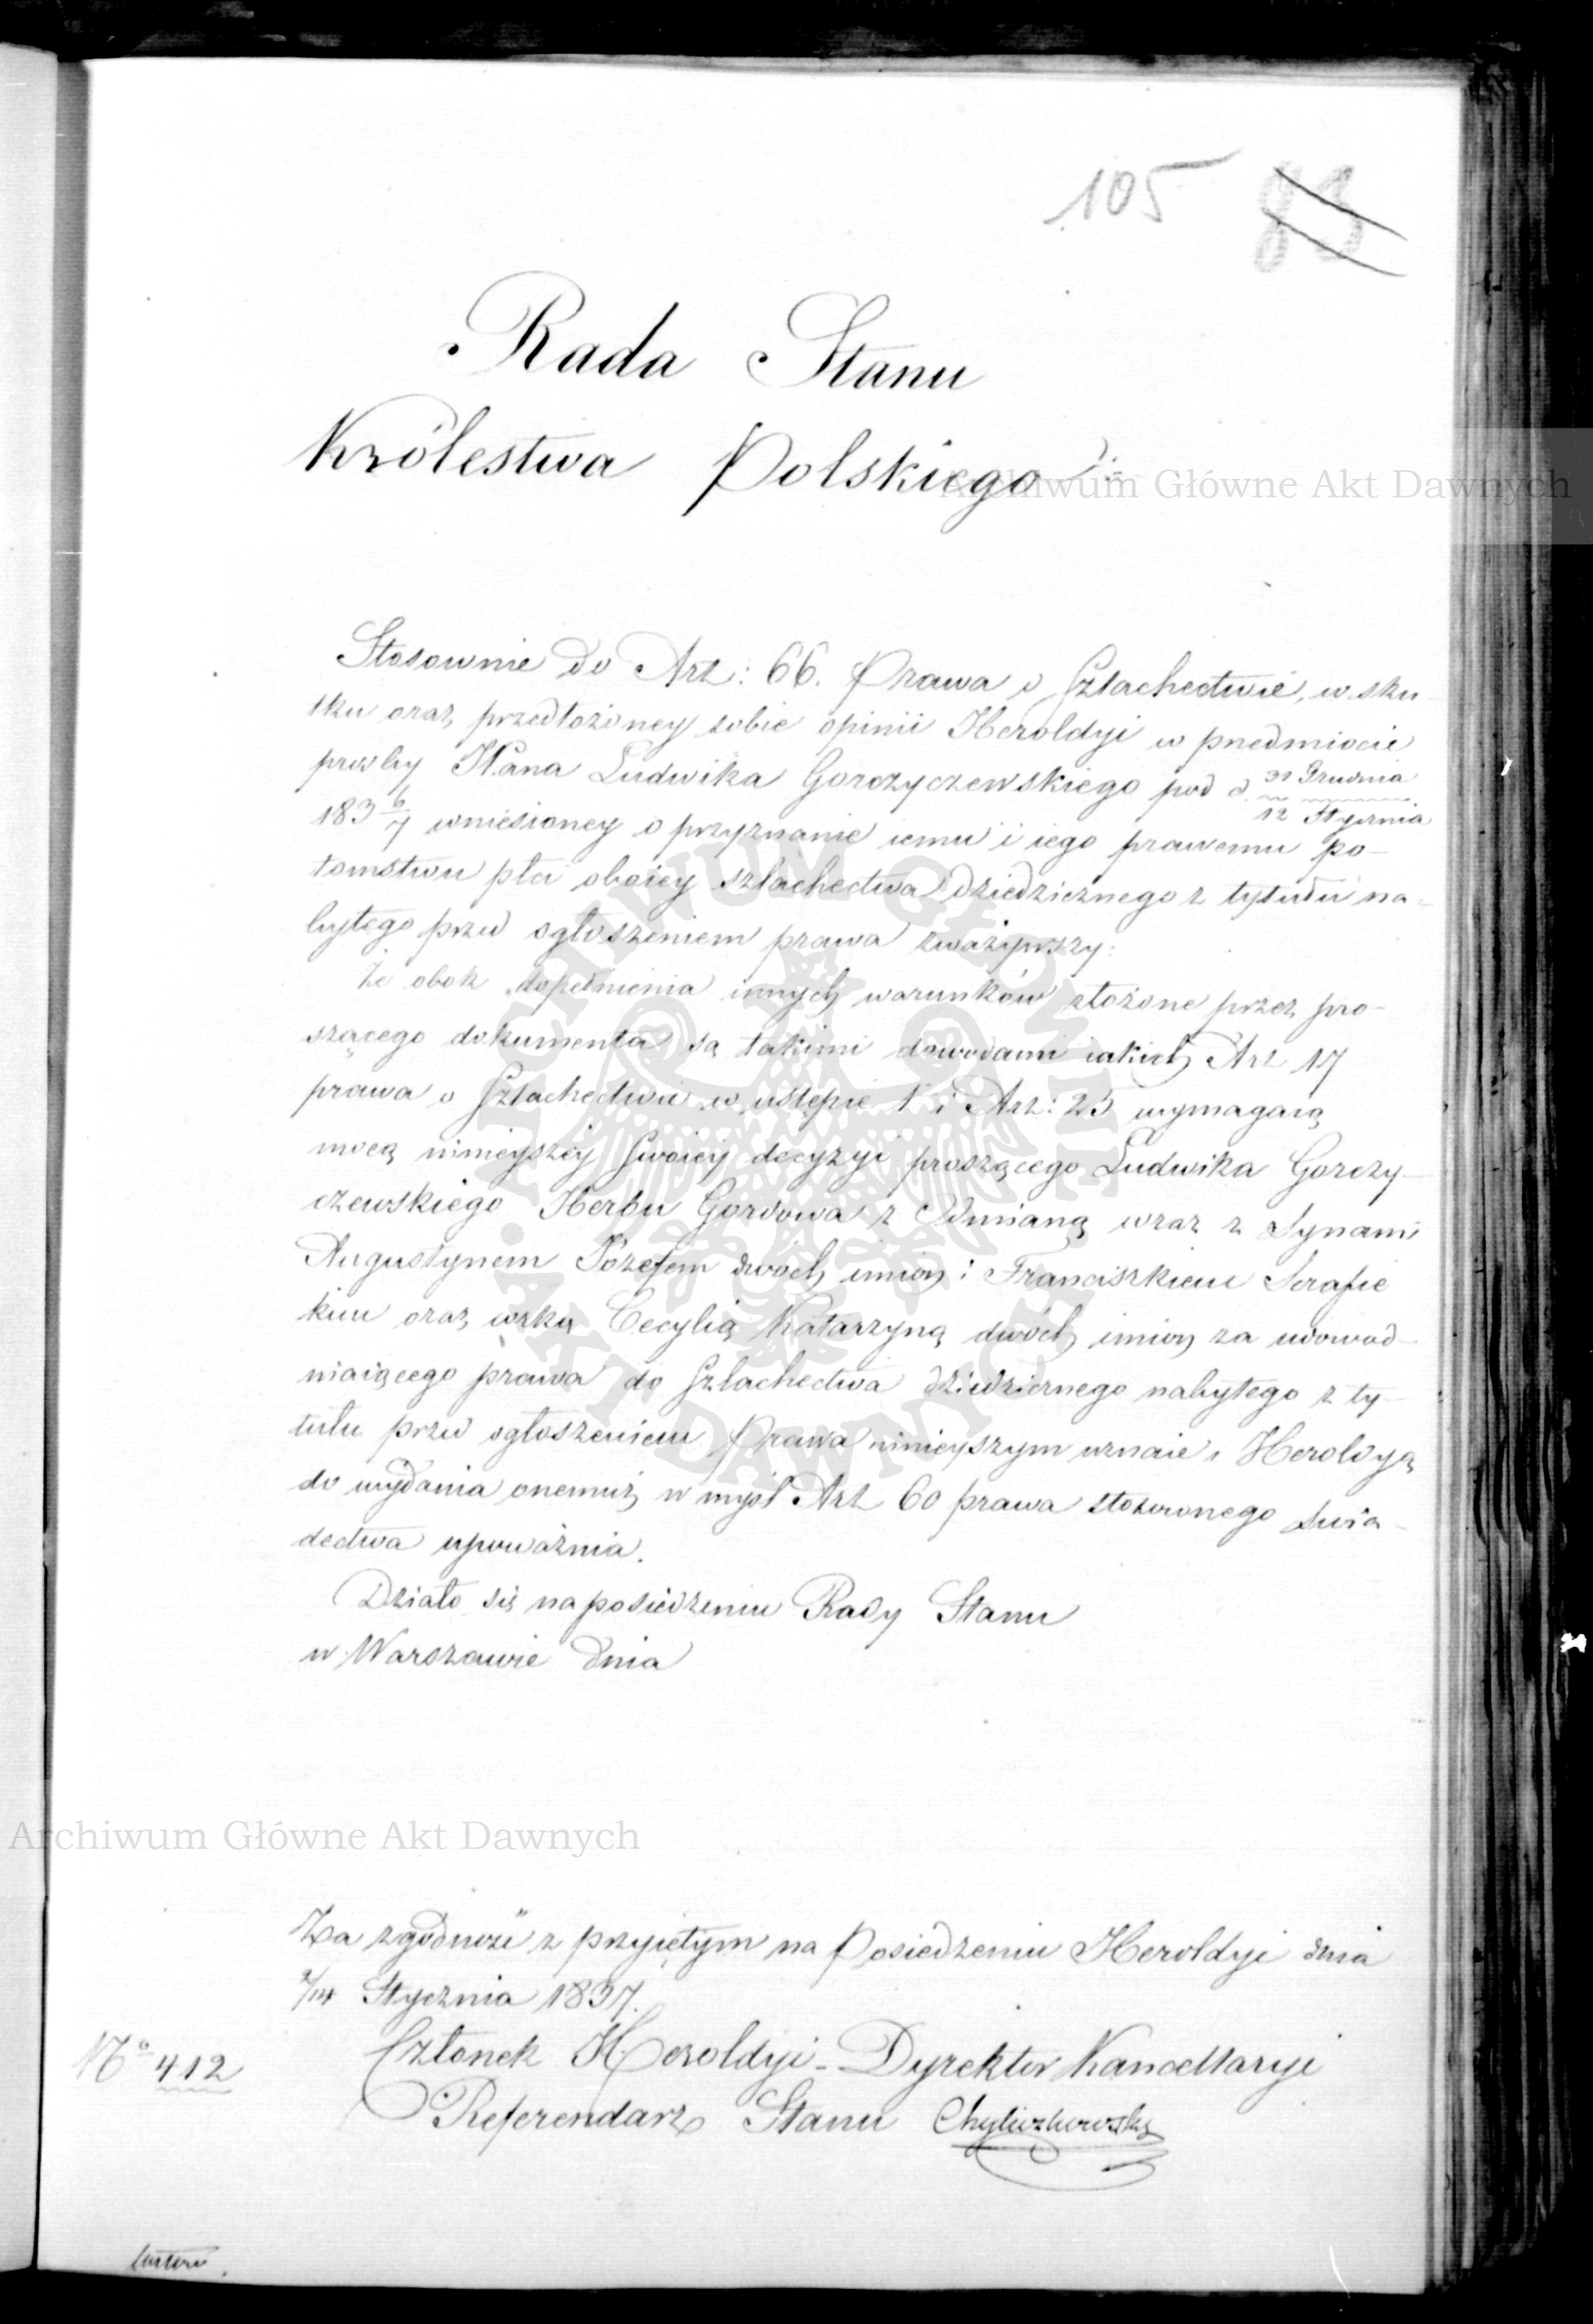 105 83
Rada Stanu
Królestwa Polskiego
Archiwum Główne Akt Dawnych
Stosownie do Art: 66. Prawa o Szlachectwie, w sku
tku oraz przedłożoney sobie opinii Heroldyi w przedmiocie
prośby JPana Ludwika Gorczyczewskiego pod d. 31 Grudnia
12 Stycznia
183 6/7 wniesioney o przyznanie iemu i iego prawemu po-
tomstwu płci oboiey szlachectwa dziedzicznego z tytułu na-
bytego przed ogłoszeniem prawa zważywszy:
że obok dopełnienia innych warunków złożone przez pro-
szącego dokumenta są takimi dowodami iakich Art 17
prawa o Szlachectwie w ustępie 1 i Art: 25 wymagaią
mocą ninieyszéy Swoiéy decyzyi proszącego Ludwika Gorczy-
czewskiego Herbu Gozdowa z Odmianą wraz z Synami
Augustynem Józefem dwóch imion i Franciszkiem Serafic
kim oraz córką Cecylią Katarzyną dwóch imion za udowod-
niaiącego prawa do Szlachectwa dziedzicznego nabytego z ty-
tułu przed ogłoszeniem Prawa ninieyszym uznaie i Heroldyą
do wydania onemuż w myśl Art 60 prawa stosownego świa-
dectwa upoważnia.
Działo się na posiedzeniu Rady Stanu
w Warszawie dnia
Archiwum Główne Akt Dawnych
Za zgodność z przyiętym na Posiedzeniu Heroldyi dnia
2/14 Stycznia 1837.
Członek Heroldyi - Dyrektor Kancellaryi
No 412
Referendarz Stanu Chyliczkowski
ARCHIWUM GŁÓWNE
AKT DAWNYCH